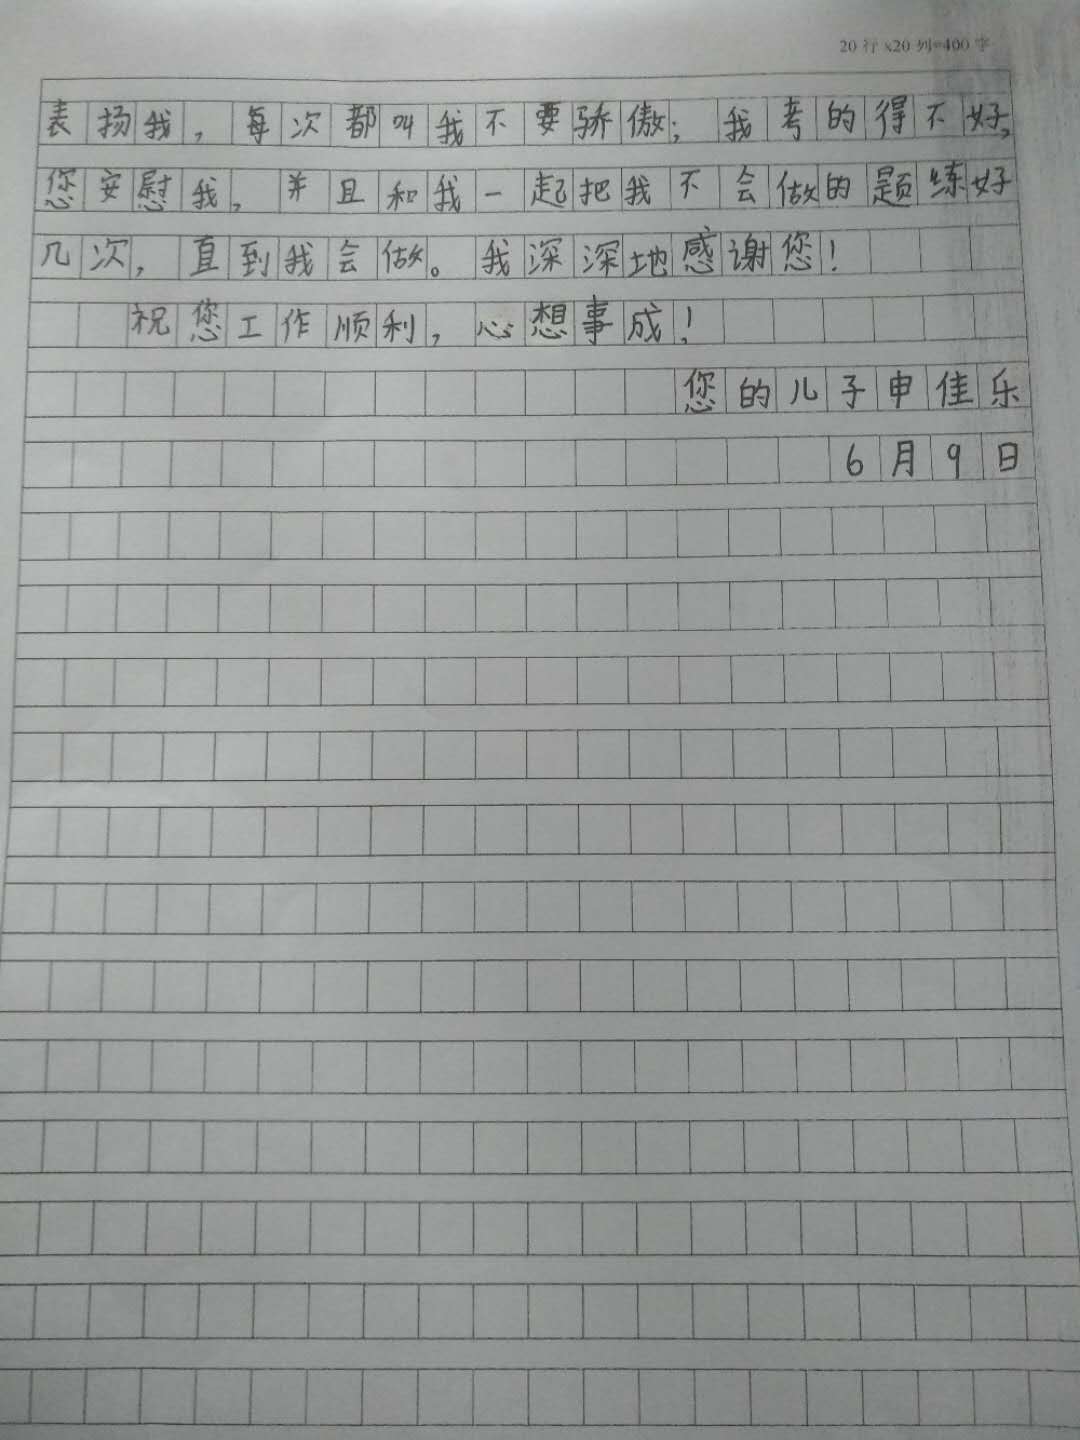 20行x20列=400字
表扬我，每次都叫我不要骄傲；我考的得不好，
您安慰我，并且和我一起把我不会做的题练好
几次，直到我会做。我深深地感谢您！
祝您工作顺利，心想事成！
您的儿子申佳乐
6月9日